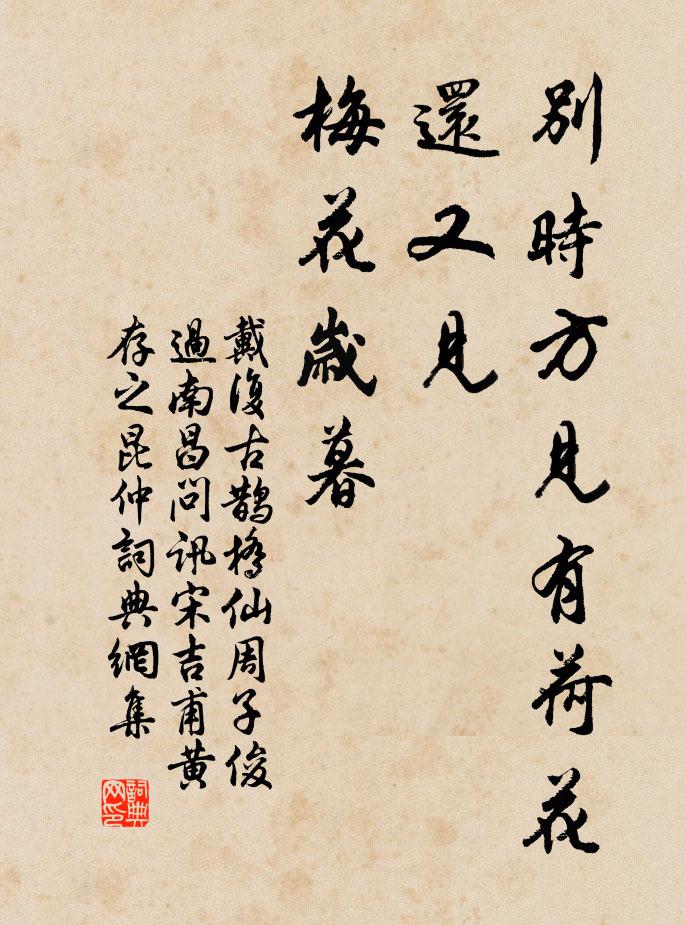 別時方見有荷花
還又見
梅花歲暮
戴復古鵲橋仙周子俊
過南昌問訊宋吉甫黄
存之昆仲詞典網集
詞典
网印